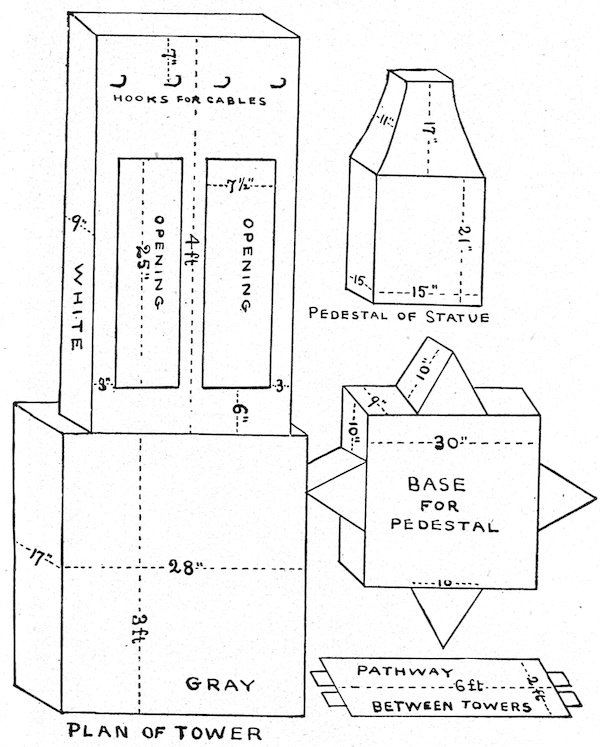 7"
HOOKS FOR CABLES
7½"
OPENING
25"
4 ft
OPENING
9"
WHITE
3"
3
6"
17"
28"
3 ft
GRAY
PLAN OF TOWER
11"
17"
21"
15
15"
PEDESTAL OF STATUE
10"
9"
10"
30"
BASE
FOR
PEDESTAL
10
PATHWAY
6 ft
2 ft
BETWEEN TOWERS